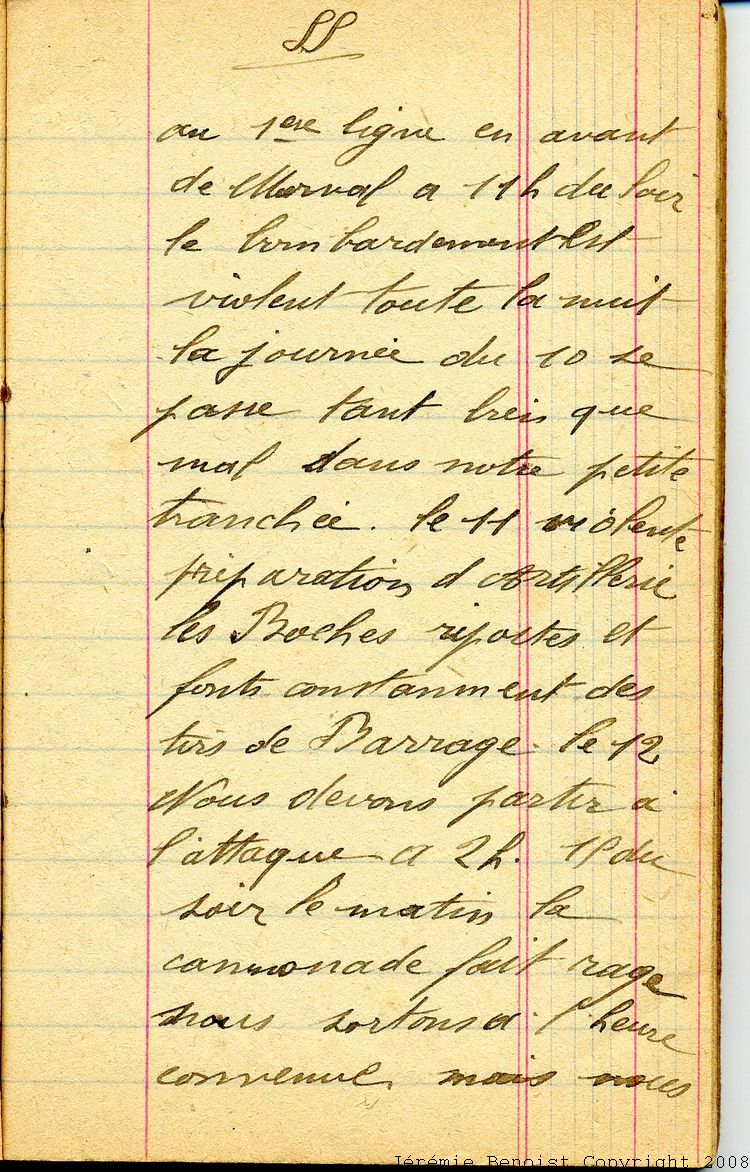 55
au 1ere ligne en avant
de Morval a 11h du soir
le bombardement Est
violent toute la nuit
la journée du 10 se
passe tant bein que
mal dans notre petite
tranchée. le 11 violente
préparation d Artillerie
les Boches ripostes et
fonts constanment des
tirs de Barrage. le 12
Nous devons partir a
l'attaque a 2h. du
soir le matin la
cannonade fait rage
nous sortons a l'heure
convenue mais nous
Jérémie Benoist Copyright 2008